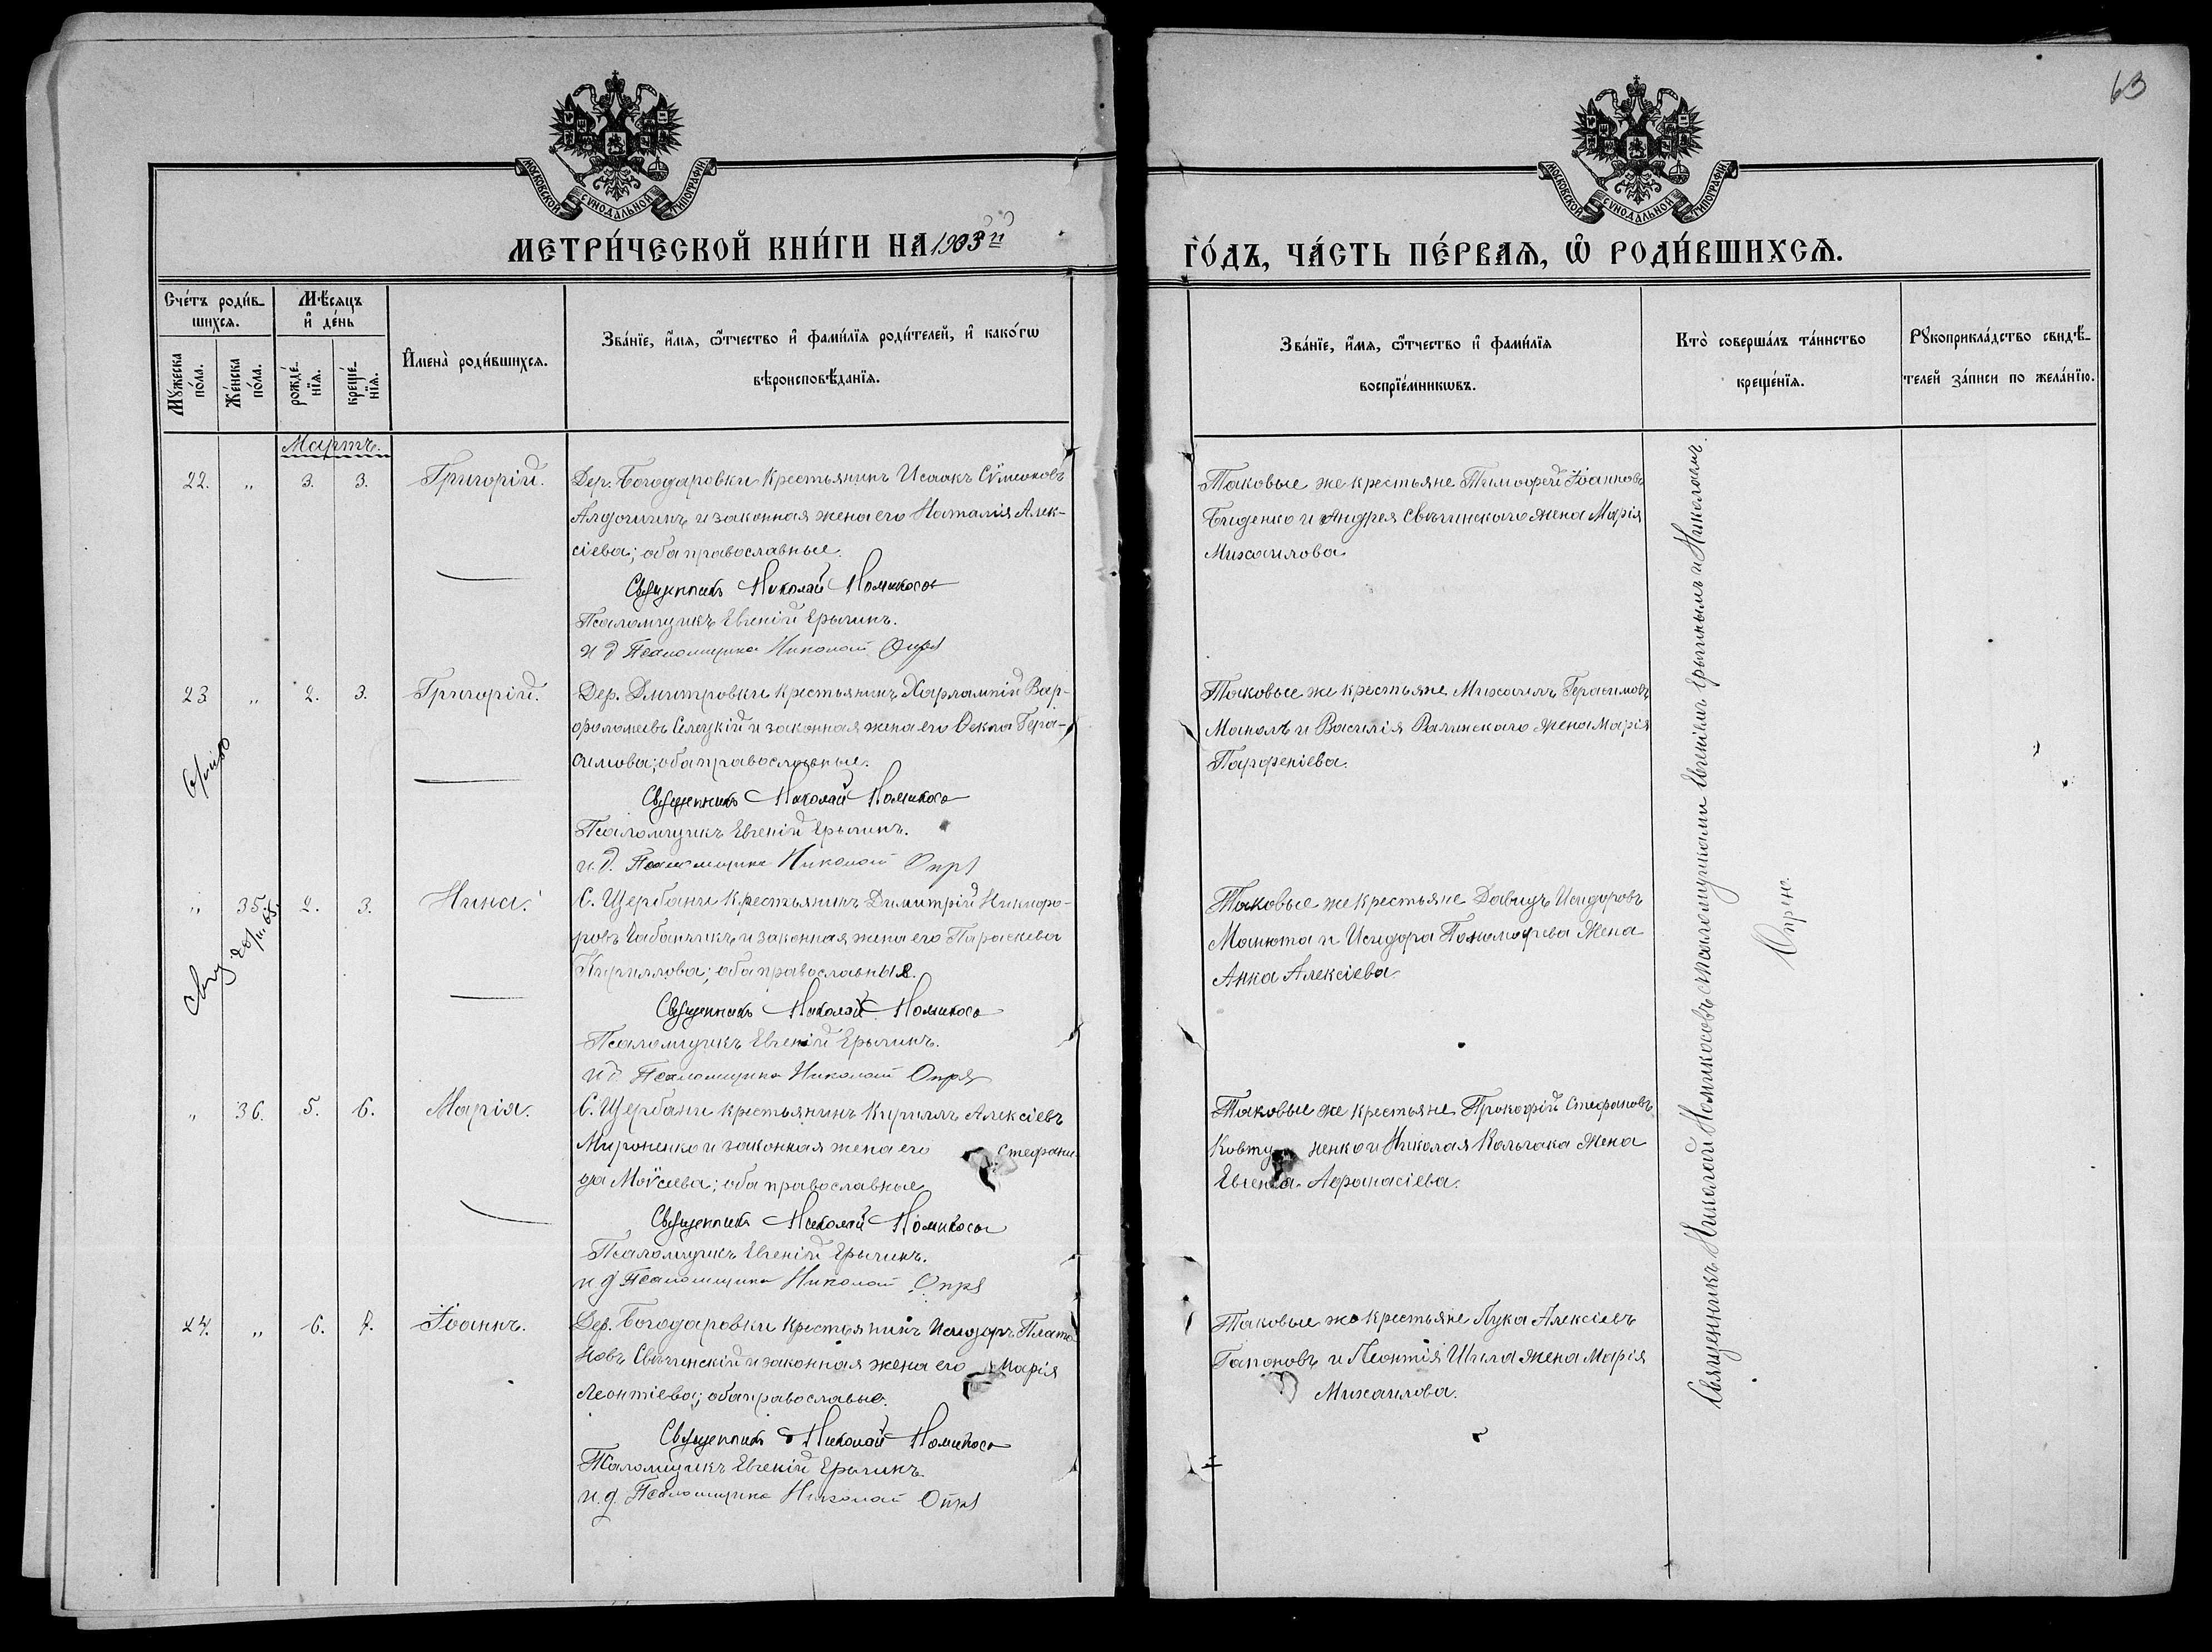 63
МОСКОВСКОЙ СѴНОДАЛЬНОЙ ТИПОГРАФІИ
МОСКОВСКОЙ СѴНОДАЛЬНОЙ ТИПОГРАФІИ
МЕТРИ́ЧЕСКОЙ КНИ́ГИ НА 1903й
ГО́ДЪ, ЧА́СТЬ ПЕ́РВАѦ, Ѡ҆ РОДИ́ВШИХСѦ.
Сче́тъ роди́в-
шихсѧ.
Мѣ́сѧцъ
и҆ де́нь
Мꙋ́жеска
по́ла.
Же́нска
по́ла.
рожде́-
нїѧ.
креще́-
нїѧ.
И҆мена̀ роди́вшихсѧ.
Зва́нїе, и҆́мѧ, ѻ҆́тчество и҆ фами́лїѧ роди́телей, и҆ како́гѡ
вѣроисповѣ́данїѧ.
Зва́нїе, и҆́мѧ, ѻ҆́тчество и҆ фами́лїѧ
воспрїе́мникѡвъ.
Кто̀ соверша́лъ та́инство
креще́нїѧ.
Рꙋкоприкла́дство свидѣ́-
телей за́писи по жела́нїю.
Мартъ.
22. " 3. 3. Григорій.
Дер. Богодаровки крестьянинъ Исаакъ Сѵмеоновъ
и законная жена его Наталія Алек-
сіева; оба православные.
Священникъ Николай Номикосъ
Псаломщикъ Евгеній Ерыгинъ.
и д Псаломщика Николай Опря
Таковые же крестьяне Тимоѳей Іоанновъ
Биденко и Андрея Свѣчинскаго жена Марія
Михаилова
23 " 2. 3. Григорій.
Дер. Дмитровки крестьянинъ Харлампій Вар-
ѳоломеевъ Селецкій и законная жена его Ѳекла Гера-
симова; оба православные.
Священникъ Николай Номикосъ
Псаломщикъ Евгеній Ерыгинъ.
и.д. Псаломщика Николай Опря
Таковые же крестьяне Михаилъ Герасимовъ
Маколъ и Василія жена Марія
Парѳеніева.
" 35. 2. 3. Нина.
С. Щербани крестьянинъ Димитрій Никифо-
ровъ Чабанчикъ и законная жена его Параскева
Кириллова; оба православные.
Священникъ Николай Номикосъ
Псаломщикъ Евгеній Ерыгинъ.
и д. Псаломщика Николай Опря
Таковые же крестьяне Давидъ Исидоровъ
Манюта и Исидора Пономарева жена
Анна Алексіева
" 36. 5. 6. Марія.
С. Щербани крестьянинъ Кириллъ Алексіевъ
Мироненко и законная жена его Стефани-
да Моѵсеева; оба православные
Священникъ Николай Номикосъ
Псаломщикъ Евгеній Ерыгинъ.
и д Псаломщика Николай Опря
Таковые же крестьяне Прокофій Стефановъ
Ковтуненко и Николая Колчака жена
Евгенія Аѳанасіева.
24. " 6. 7. Іоаннъ.
Дер. Богодаровки крестьянинъ Исидоръ Плато-
новъ Свѣчинскій и законная жена его Марія
Леонтіева; оба православные.
Священникъ Николай Номикосъ
Псаломщикъ Евгеній Ерыгинъ
и.д. Псаломщика Николай Опря
Таковые же крестьяне Лука Алексіевъ
Гапоновъ и Леонтія Шила жена Марія
Михаилова.
Священникъ Николай Номикосовъ съ псаломщиками Евгеніемъ Ерыгинымъ и Николаемъ
Опрею.